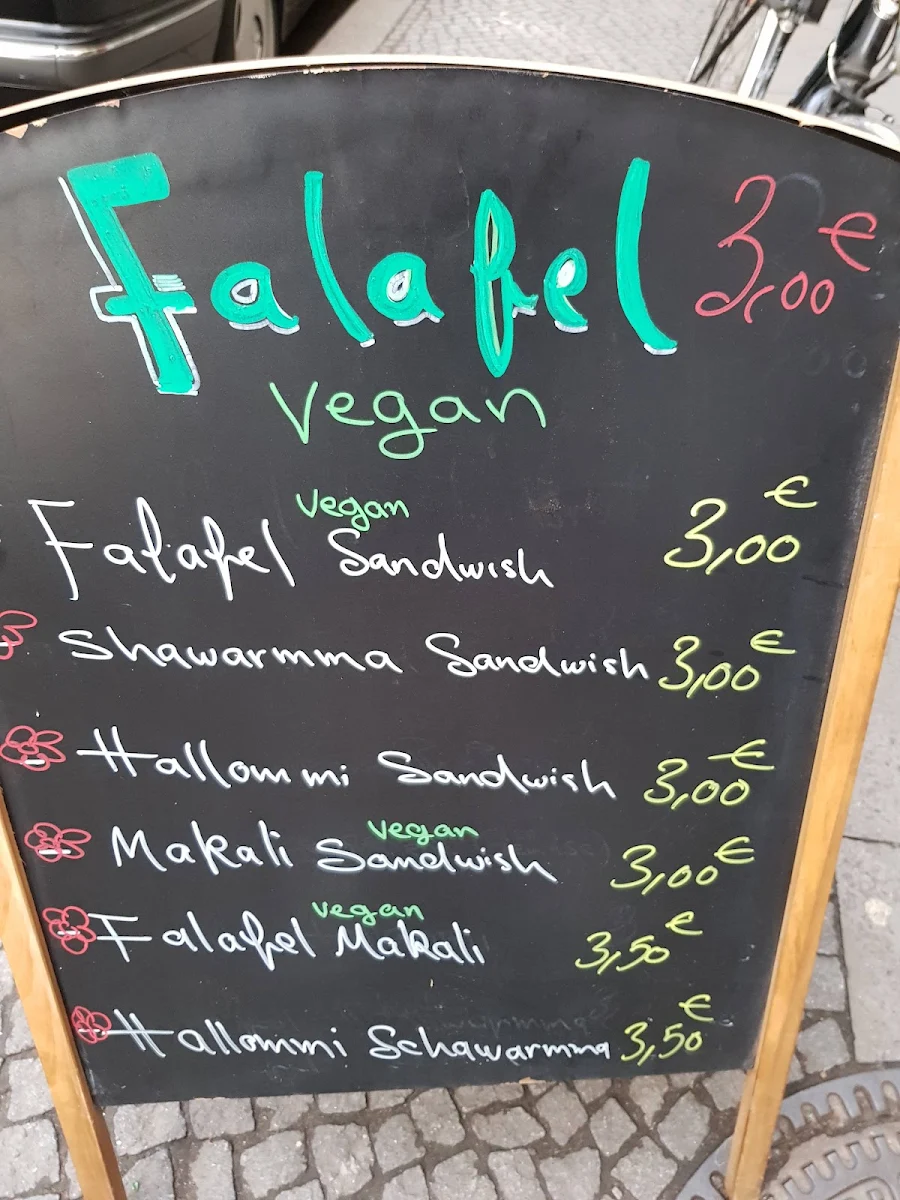 Falafel 3,00 €
Vegan
Vegan
Falafel Sandwish 3,00 €
Shawarmma Sandwish 3,00 €
Hallommi Sandwish 3,00 €
Vegan
Makali Sandwish 3,00 €
Vegan
Falafel Makali 3,50 €
Hallommi Schawarmma 3,50 €